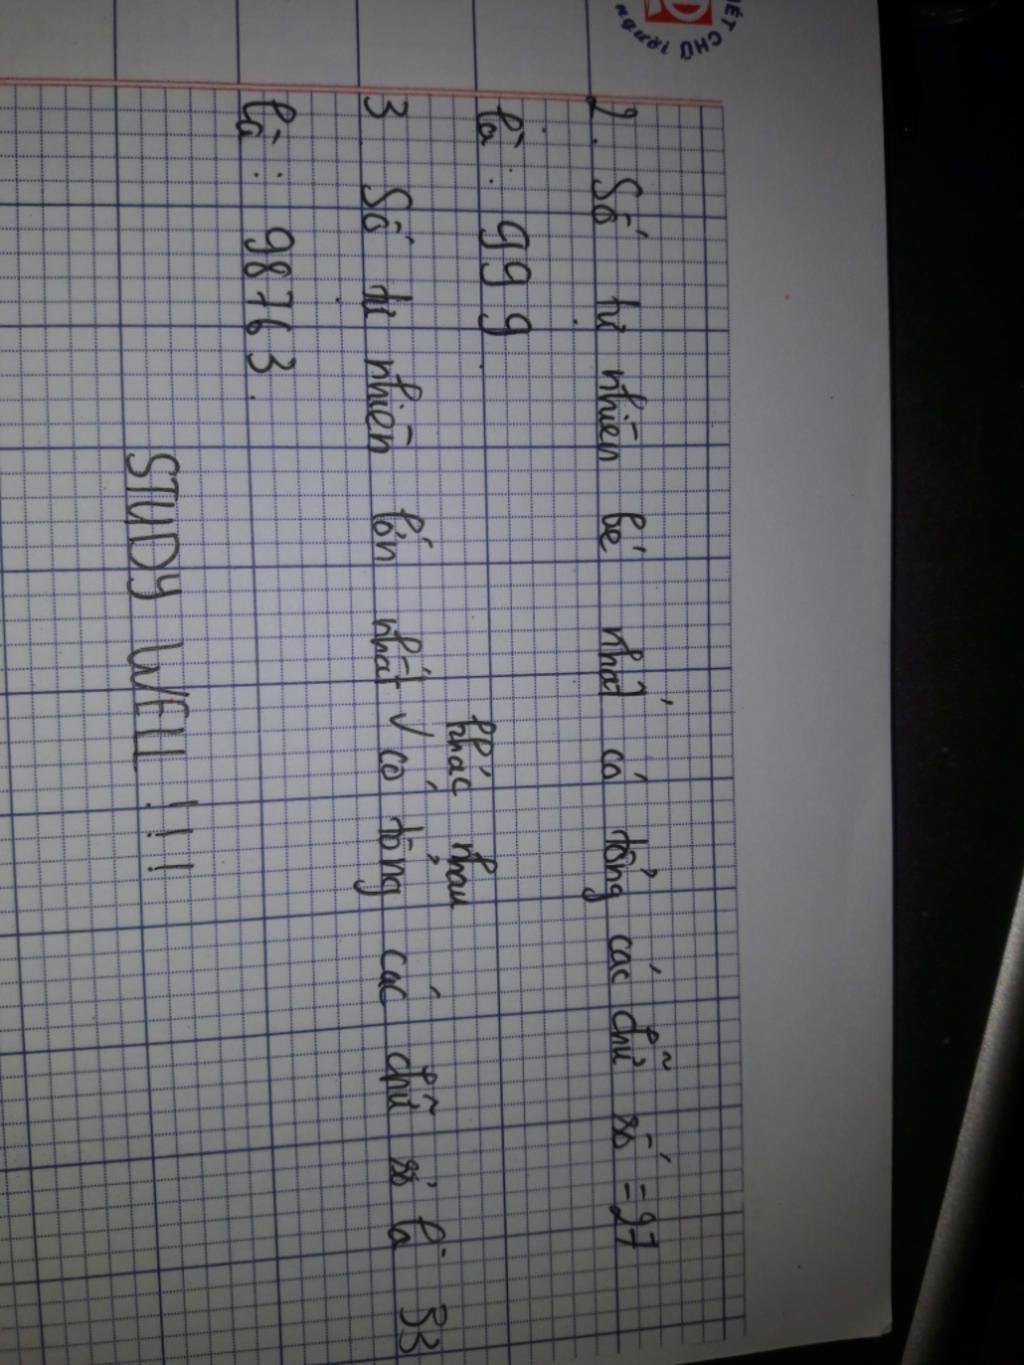 VIẾT CHỮ
người
2. Số tự nhiên bé nhất có tổng các chữ số = 27
là : 999.
3 Số tự nhiên lớn nhất √ có tổng các chữ số là 33
khác nhau
là : 98763.
STUDY WELL !!!